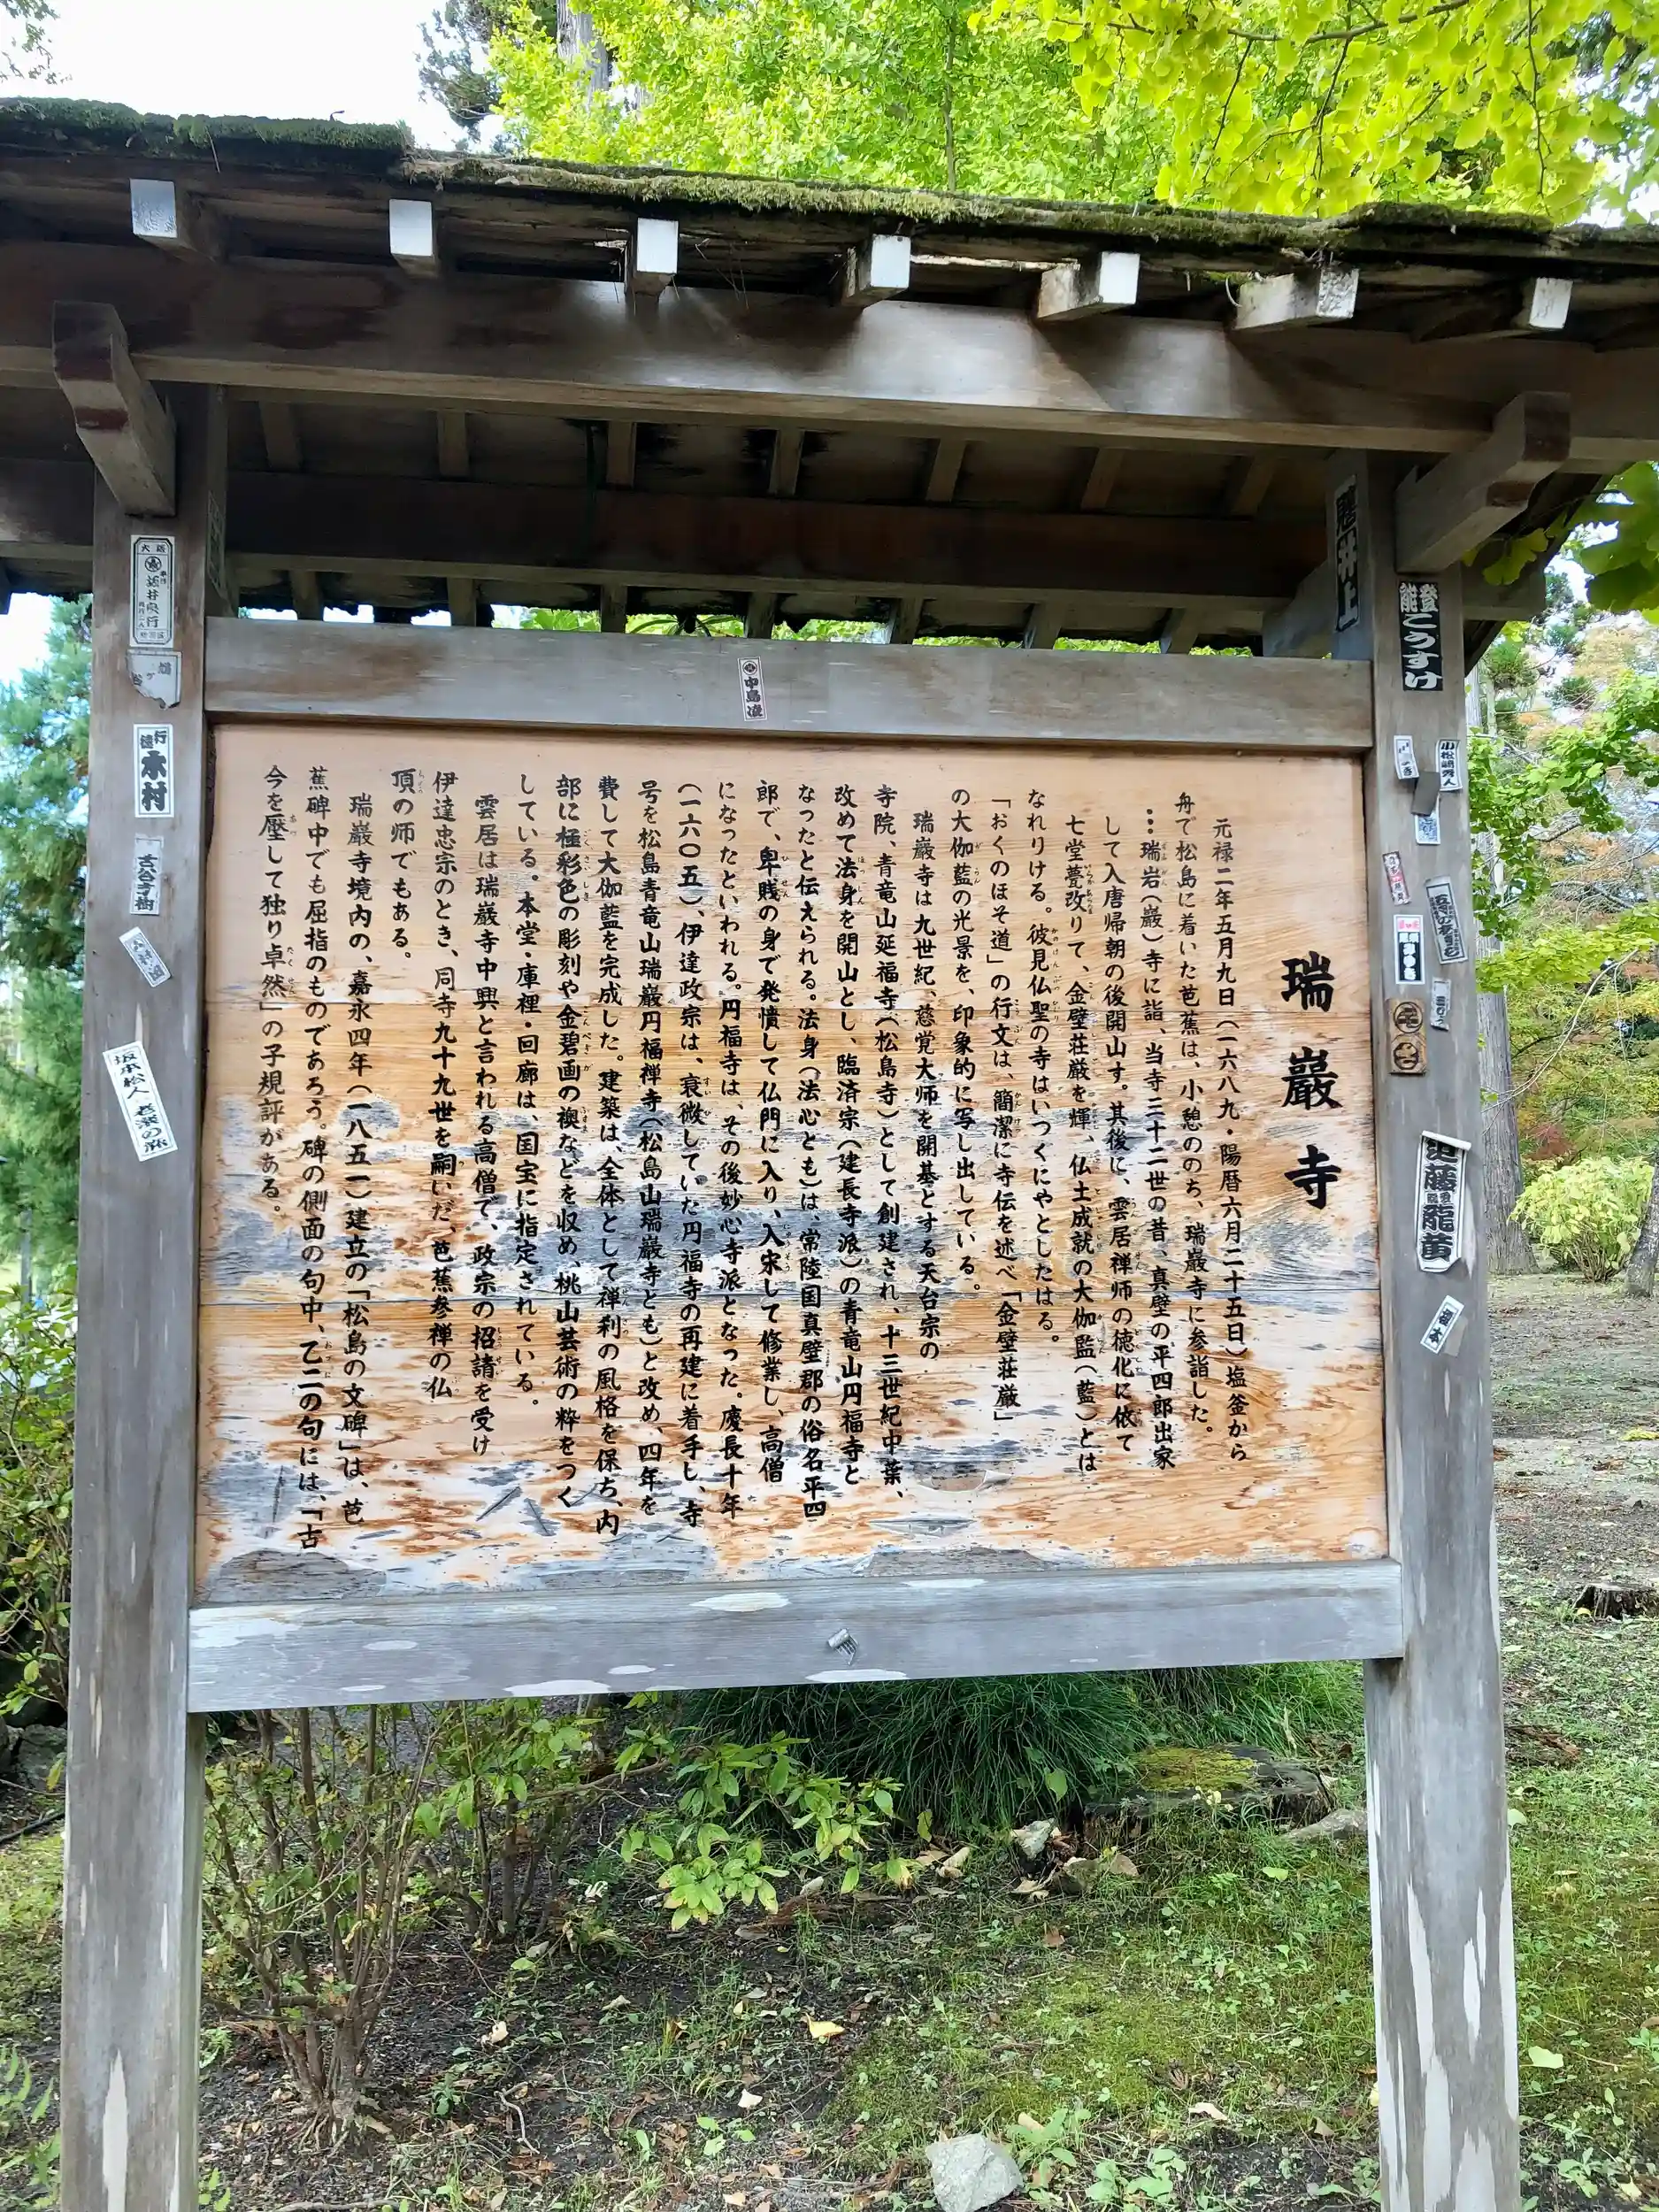 瑞巖寺
元禄二年五月九日（一六八九・陽暦六月二十五日）塩釜から
舟で松島に着いた芭蕉は、小憩ののち、瑞巖寺に参詣した。
…瑞岩（巖）寺に詣、当寺三十二世の昔、真壁の平四郎出家
して入唐帰朝の後開山す。其後に、雲居禅師の徳化に依て
七堂甍改りて、金壁荘厳を輝、仏土成就の大伽監（藍）とは
なれりける。彼見仏聖の寺はいつくにやとしたはる。
「おくのほそ道」の行文は、簡潔に寺伝を述べ「金壁荘厳」
の大伽藍の光景を、印象的に写し出している。
瑞巖寺は九世紀、慈覚大師を開基とする天台宗の
寺院、青竜山延福寺（松島寺）として創建され、十三世紀中葉、
改めて法身を開山とし、臨済宗（建長寺派）の青竜山円福寺と
なったと伝えられる。法身（法心とも）は、常陸国真壁郡の俗名平四
郎で、卑賤の身で発憤して仏門に入り、入宋して修業し、高僧
になったといわれる。円福寺は、その後妙心寺派となった。慶長十年
（一六〇五）、伊達政宗は、衰微していた円福寺の再建に着手し、寺
号を松島青竜山瑞巖円福禅寺（松島山瑞巖寺とも）と改め、四年を
費して大伽藍を完成した。建築は、全体として禅刹の風格を保ち、内
部に極彩色の彫刻や金碧画の襖などを収め、桃山芸術の粋をつく
している。本堂・庫裡・回廊は、国宝に指定されている。
雲居は瑞巖寺中興と言われる高僧で、政宗の招請を受け
伊達忠宗のとき、同寺九十九世を嗣いだ、芭蕉参禅の仏
頂の師でもある。
瑞巖寺境内の、嘉永四年（一八五一）建立の「松島の文碑」は、芭
蕉碑中でも屈指のものであろう。碑の側面の句中、乙二の句には、「古
今を壓して独り卓然」の子規評がある。
中島凌
井上
能登こうすけ
木村
古谷寺樹
坂本松人